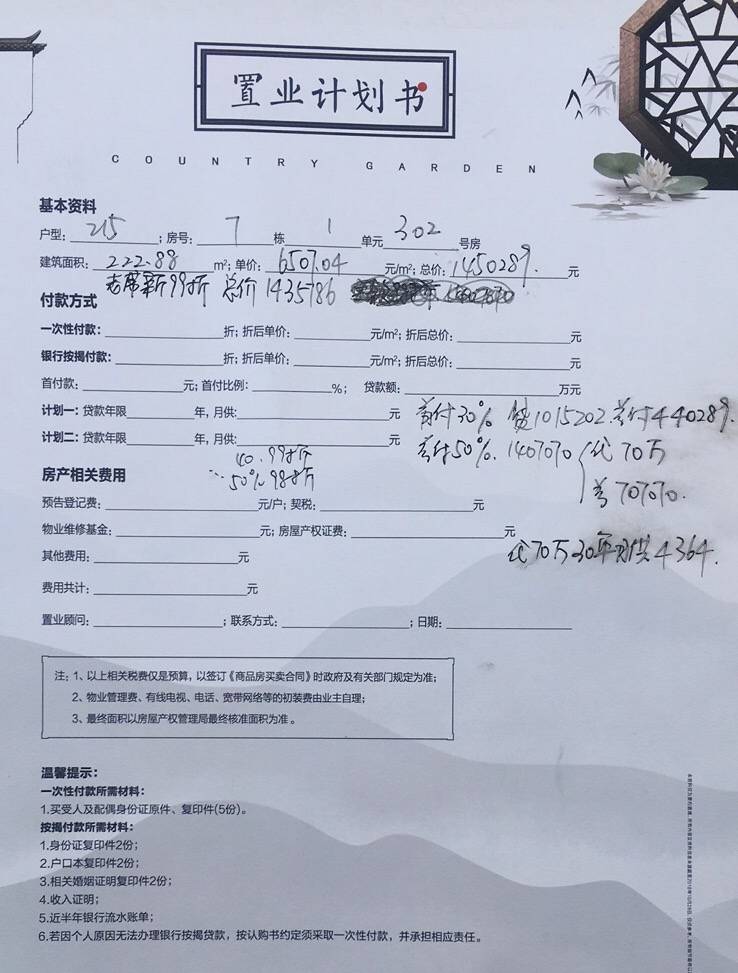 置业计划书
COUNTRY GARDEN
基本资料
户型: 215 ; 房号: 7 栋 1 单元 302 号房
建筑面积: 222.88 m²; 单价: 6507.04 元/m²; 总价: 1450289. 元
99折 总价 1435786
付款方式
一次性付款: 折; 折后单价: 元/m²; 折后总价: 元
银行按揭付款: 折; 折后单价: 元/m²; 折后总价: 元
首付款: 元; 首付比例: %; 贷款额: 万元
计划一: 贷款年限 年, 月供: 元 首付30% 贷1015202. 首付440289.
计划二: 贷款年限 年, 月供: 元 首付50%. 1407070 代 70万
40. 99折
首 707070.
50% 98折
房产相关费用
预告登记费: 元/户; 契税: 元
物业维修基金: 元; 房屋产权证费: 元
代70万30年月供4364.
其他费用: 元
费用共计: 元
置业顾问: ; 联系方式: ; 日期:
注: 1、以上相关税费仅是预算, 以签订《商品房买卖合同》时政府及有关部门规定为准;
2、物业管理费、有线电视、电话、宽带网络等的初装费由业主自理;
3、最终面积以房屋产权管理局最终核准面积为准。
温馨提示:
一次性付款所需材料:
1.买受人及配偶身份证原件、复印件(5份)。
按揭付款所需材料:
1.身份证复印件2份;
2.户口本复印件2份;
3.相关婚姻证明复印件2份;
4.收入证明;
5.近半年银行流水账单;
6.若因个人原因无法办理银行按揭贷款, 按认购书约定须采取一次性付款, 并承担相应责任。